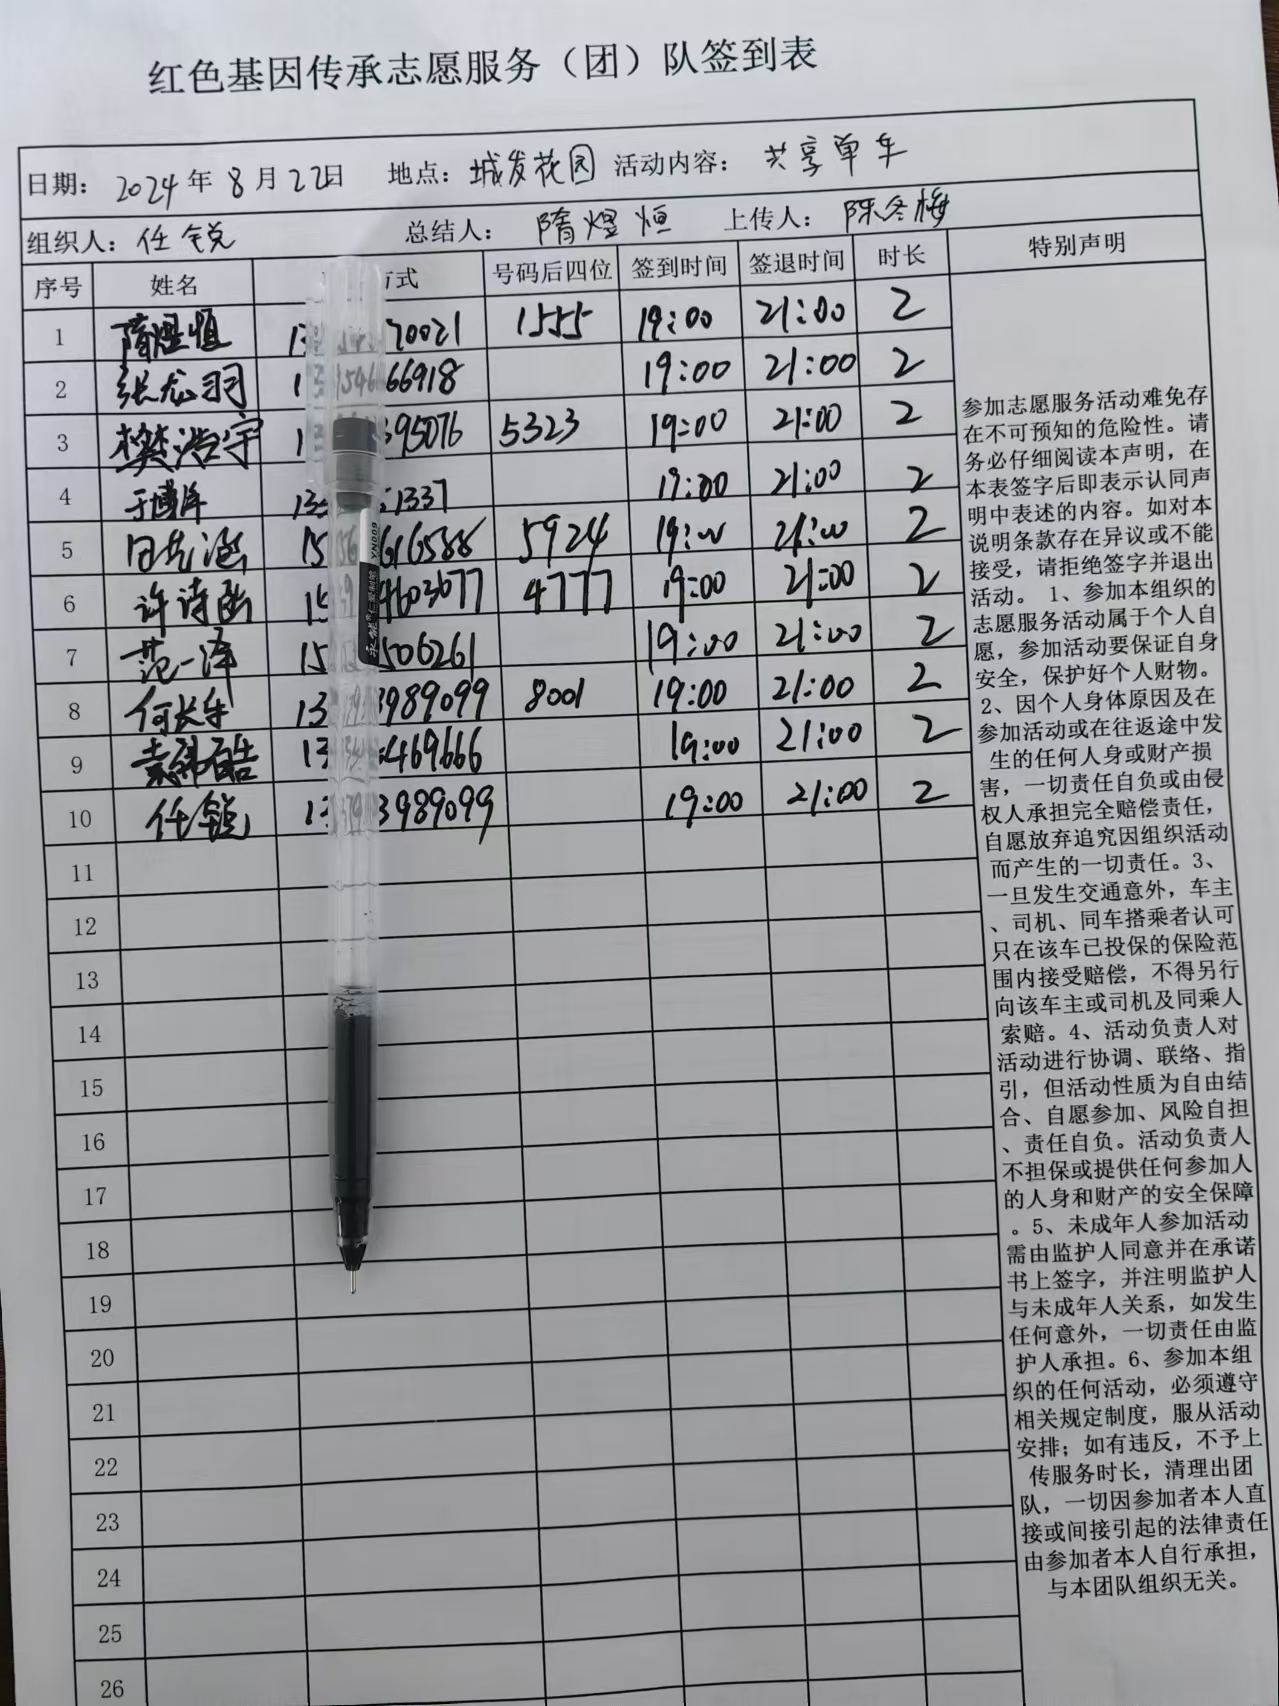 红色基因传承志愿服务（团）队签到表
日期：2024年8月22日 地点：城发花园 活动内容：共享单车
组织人：任锐 总结人：隋煜恒 上传人：陈冬梅
序号 姓名 方式 号码后四位 签到时间 签退时间 时长 特别声明
1 隋煜恒 70021 1555 19:00 21:00 2
2 张龙羽 66918 19:00 21:00 2
3 樊浩宇 395076 5323 19:00 21:00 2
4 于博洋 1337 19:00 21:00 2
5 616588 5924 19:00 21:00 2
6 许诗函 4603077 4777 19:00 21:00 2
7 范一泽 506261 19:00 21:00 2
8 何长车 3989099 8001 19:00 21:00 2
9 469666 19:00 21:00 2
10 任锐 3989099 19:00 21:00 2
11
12
13
14
15
16
17
18
19
20
21
22
23
24
25
26
参加志愿服务活动难免存
在不可预知的危险性。请
务必仔细阅读本声明，在
本表签字后即表示认同声
明中表述的内容。如对本
说明条款存在异议或不能
接受，请拒绝签字并退出
活动。1、参加本组织的
志愿服务活动属于个人自
愿，参加活动要保证自身
安全，保护好个人财物。
2、因个人身体原因及在
参加活动或在往返途中发
生的任何人身或财产损
害，一切责任自负或由侵
权人承担完全赔偿责任，
自愿放弃追究因组织活动
而产生的一切责任。3、
一旦发生交通意外，车主
、司机、同车搭乘者认可
只在该车已投保的保险范
围内接受赔偿，不得另行
向该车主或司机及同乘人
索赔。4、活动负责人对
活动进行协调、联络、指
引，但活动性质为自由结
合、自愿参加、风险自担
、责任自负。活动负责人
不担保或提供任何参加人
的人身和财产的安全保障
。5、未成年人参加活动
需由监护人同意并在承诺
书上签字，并注明监护人
与未成年人关系，如发生
任何意外，一切责任由监
护人承担。6、参加本组
织的任何活动，必须遵守
相关规定制度，服从活动
安排；如有违反，不予上
传服务时长，清理出团
队，一切因参加者本人直
接或间接引起的法律责任
由参加者本人自行承担，
与本团队组织无关。
YN009